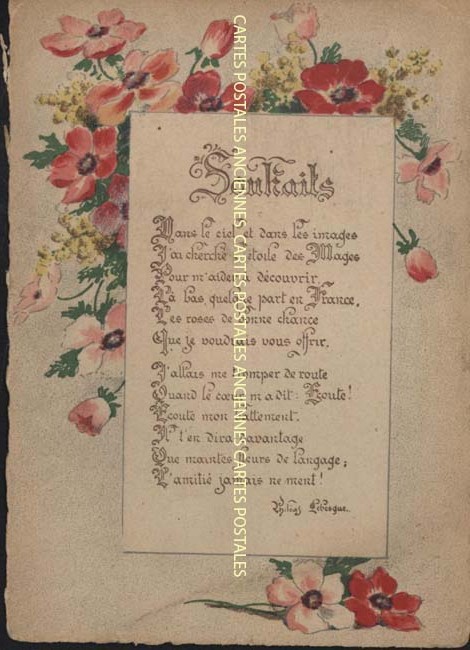 Souhaits
Dans le ciel et dans les images
J'ai cherché l'étoile des Mages
Pour m'aider à découvrir,
Là bas, quelque part en France,
Les roses de bonne chance
Que je voudrais vous offrir.
J'allais me tromper de route
Quand le cœur m'a dit: Ecoute!
Ecoute mon battement.
Il t'en dira davantage
Que maintes fleurs de langage;
L'amitié jamais ne ment!
Levesque.
CARTES POSTALES ANCIENNES CARTES POSTALES ANCIENNES CARTES POSTALES ANCIENNES CARTES POSTALES